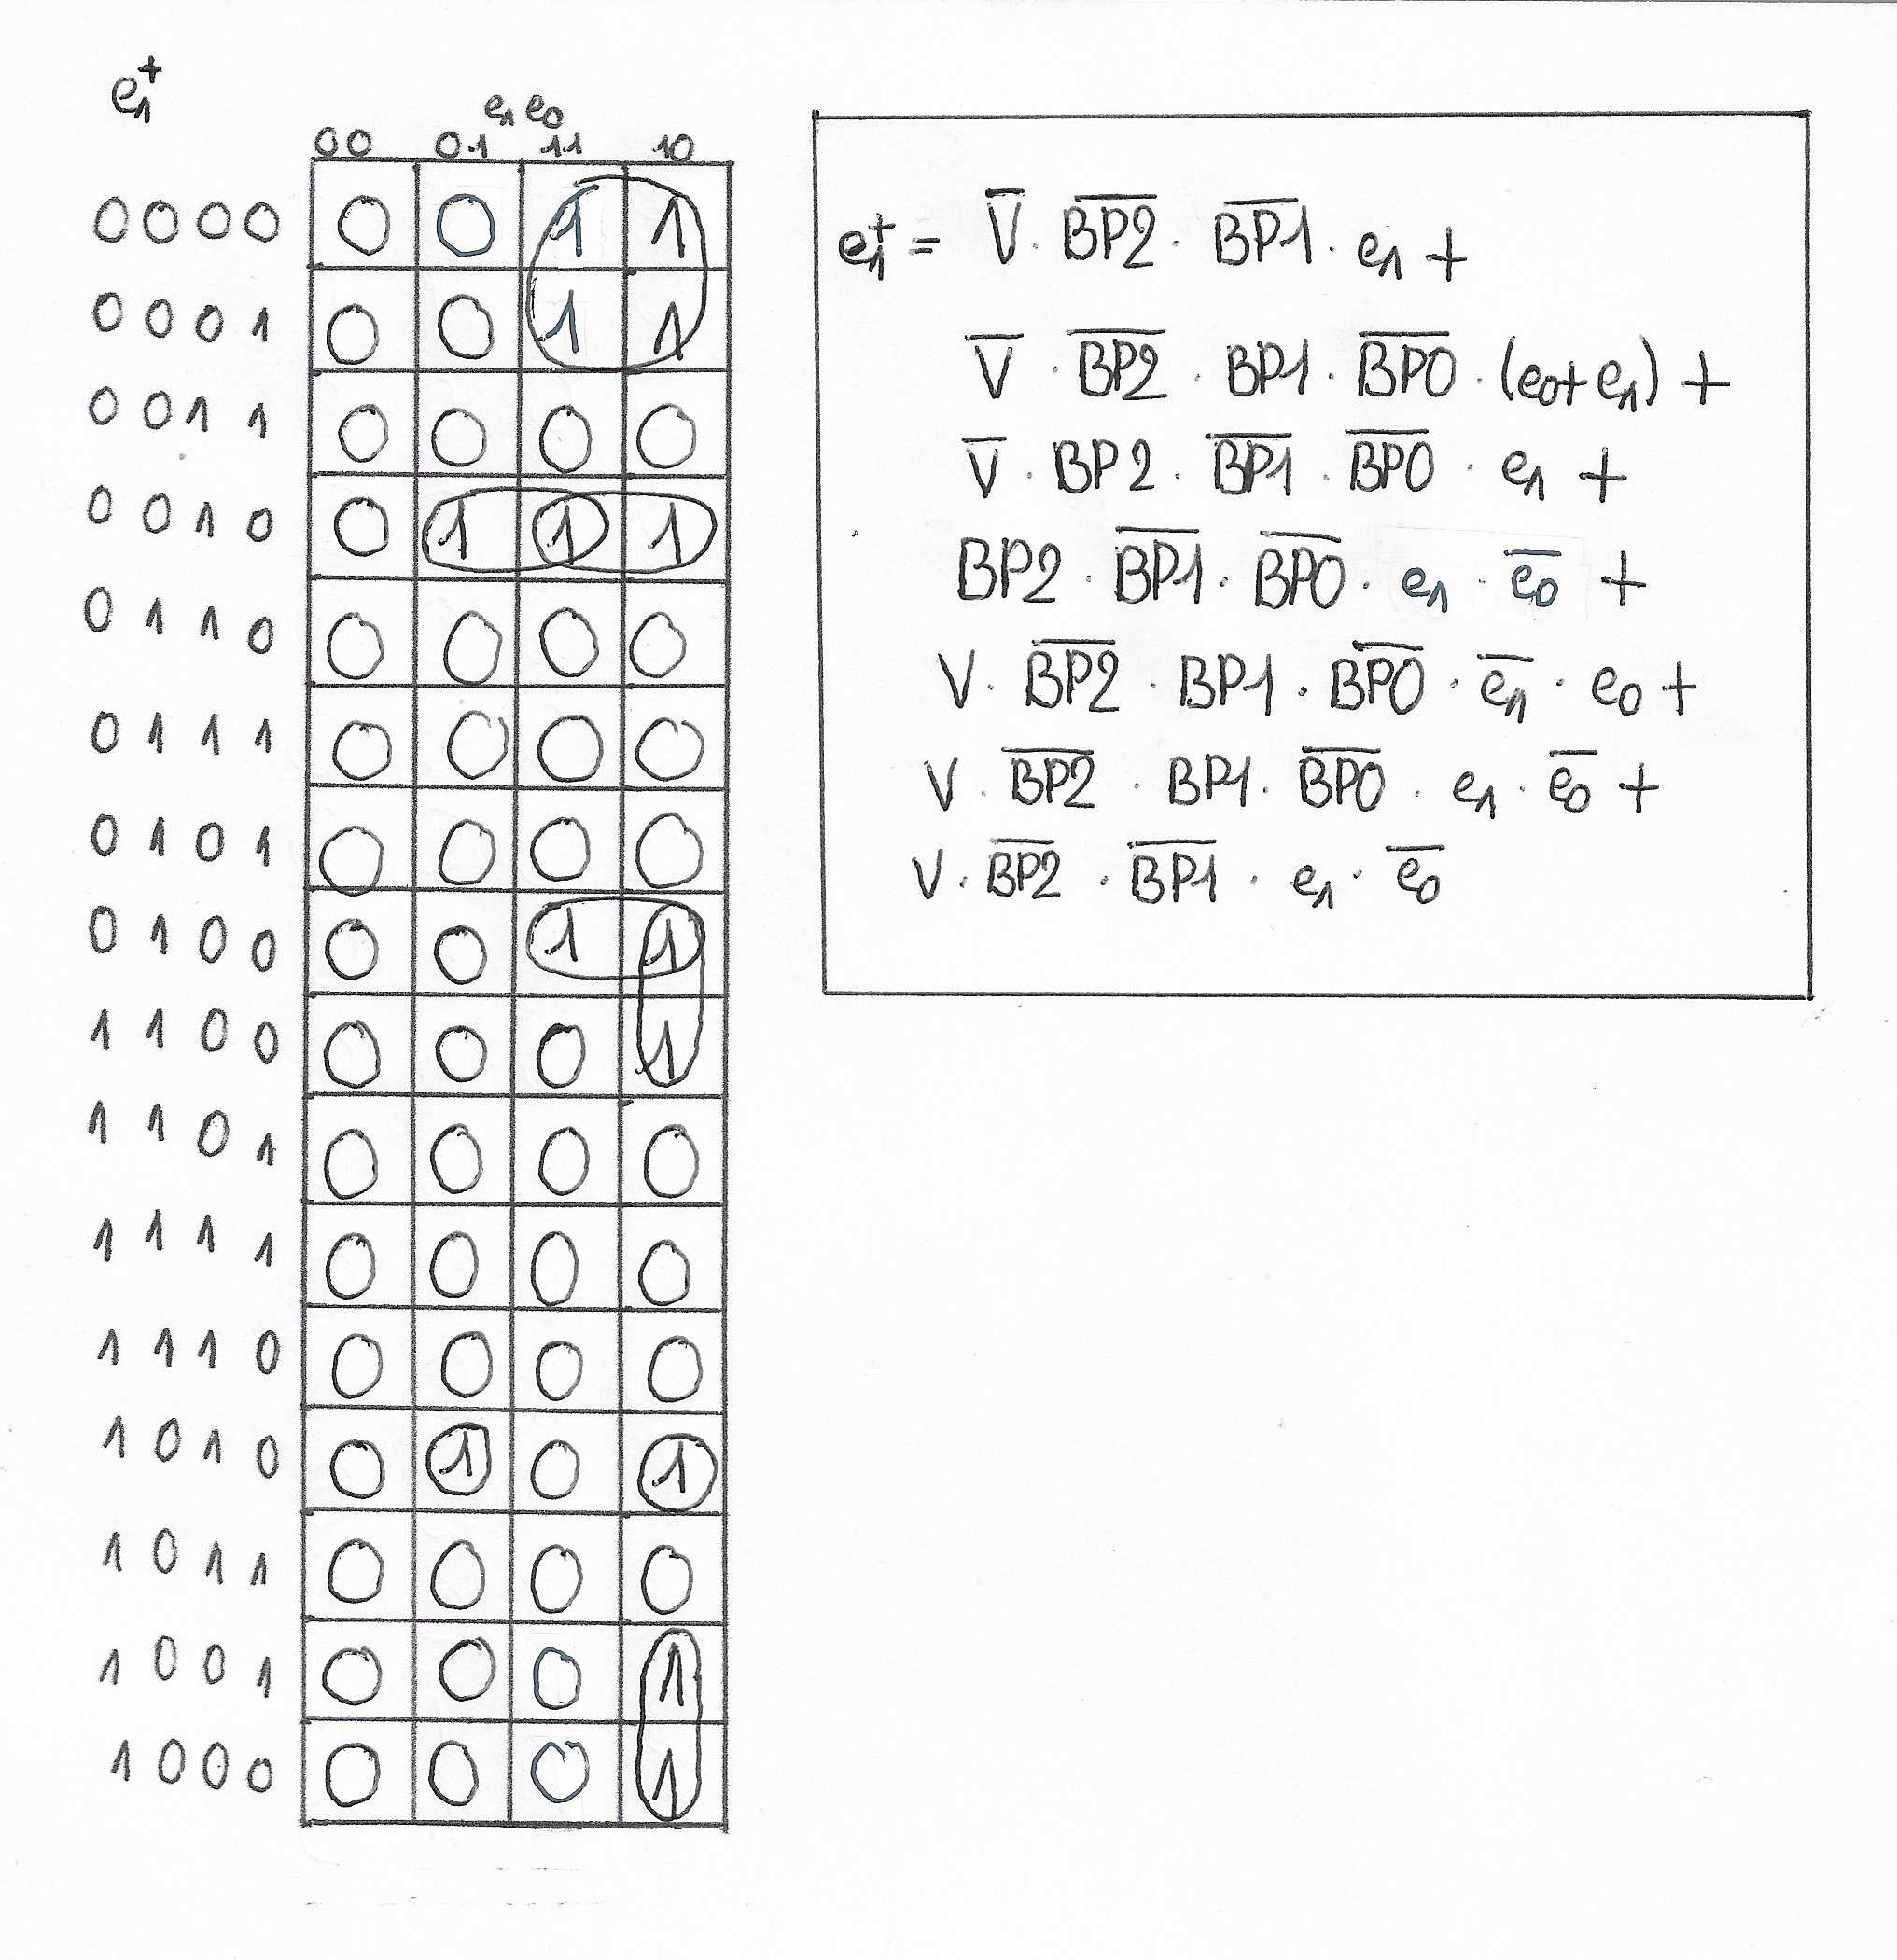 e₁⁺
e₁ e₀
00 01 11 10
0000 0 0 1 1
0001 0 0 1 1
0011 0 0 0 0
0010 0 1 1 1
0110 0 0 0 0
0111 0 0 0 0
0101 0 0 0 0
0100 0 0 1 1
1100 0 0 0 1
1101 0 0 0 0
1111 0 0 0 0
1110 0 0 0 0
1010 0 1 0 1
1011 0 0 0 0
1001 0 0 0 1
1000 0 0 0 1
e₁⁺ = V̅ · B̅P̅2̅ · B̅P̅1̅ · e₁ +
V̅ · B̅P̅2̅ · BP1 · B̅P̅0̅ · (e₀+e₁) +
V̅ · BP2 · B̅P̅1̅ · B̅P̅0̅ · e₁ +
BP2 · B̅P̅1̅ · B̅P̅0̅ · e₁ · e̅₀̅ +
V · B̅P̅2̅ · BP1 · B̅P̅0̅ · e̅₁̅ · e₀ +
V · B̅P̅2̅ · BP1 · B̅P̅0̅ · e₁ · e̅₀̅ +
V · B̅P̅2̅ · B̅P̅1̅ · e₁ · e̅₀̅